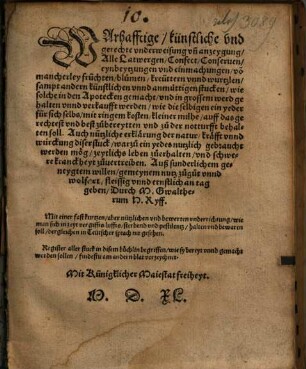 10.
WArhafftige / künstliche vnd
gerechte vnderweisung vñ anzeygung /
Alle Latwergen / Confect / Conseruen /
eynbeyzungen vnd einmachungen / vō
mancherley früchten / blůmen / kreüttern vnnd wurtzlen /
sampt andern künstlichen vnnd anmůttigen stucken / wie
solche in den Apotecken gemacht / vnd in grossem werd ge
halten vnnd verkaufft werden / wie die selbigen ein yeder
für sich selbs / mit ringem kosten / kleiner mühe / auff das ge
rechtest vnd best zůbereytten vnd zů der notturfft behal
ten soll. Auch nützliche erklärung der natur / krafft vnnd
würckung diser stuck / warzů ein yedes nutzlich gebraucht
werden mög / zeytlichs leben zůerhalten / vnd schwe
re kranckheyt zůuertreiben. Auß sunderlichem ge
neygtem willen / gemeynem nutz zůgůt vnnd
wolfart, fleissig vnnd ernstlich an tag
geben / Durch M. Gwalthe-
rum H. Ryff.
Mit einer fast kurtzen / aber nützlichen vnd bewerten vnderrichtung / wie
man sich in zeyt der
Register aller stuck in disem büchlin begriffen / wie sy bereyt vnnd gemacht
werden sollen / findestu am andern blat verzeychnet.
Mit Künigklicher Maiestat freiheyt.
M. D. XL.